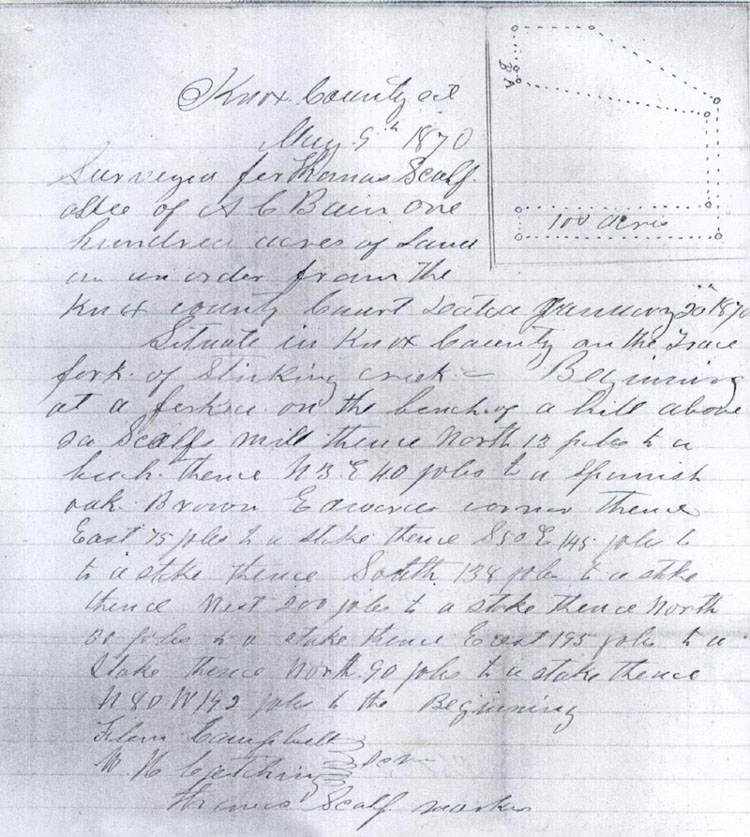 Knox County Sct
May 9th 1870
Surveyed for Thomas Scalf
aslee of A C Bain one
hundred acres of Land
on an order from the
Knox county Court Dated January 20th 1870
Situate in Knox County on the Trace
fork of Stinking creek = Beginning
at a on the bench of a hill above
sa Scalfs mill thence North 13 poles to a
thence N 3 E 40 poles to a Spanish
oak Brown Edwards corner thence
East 75 poles to a stake thence S50 E 145 poles to
to a stake thence South 138 poles to a stake
thence West 200 poles to a stake thence North
poles to a stake thence East 195 poles to a
Stake thence North 90 poles to a stake thence
N 80 W 192 poles to the Beginning
Campbell
W. H. Catching
Thomas Scalf marker
B A
100 acres